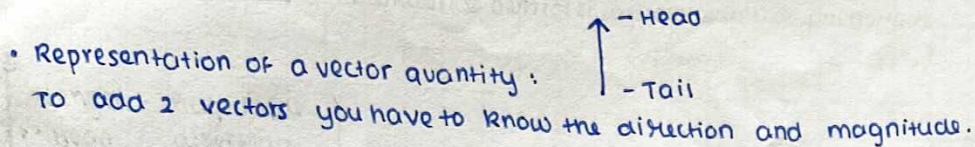 - Head
• Representation of a vector quantity :
- Tail
To add 2 vectors you have to know the direction and magnitude.